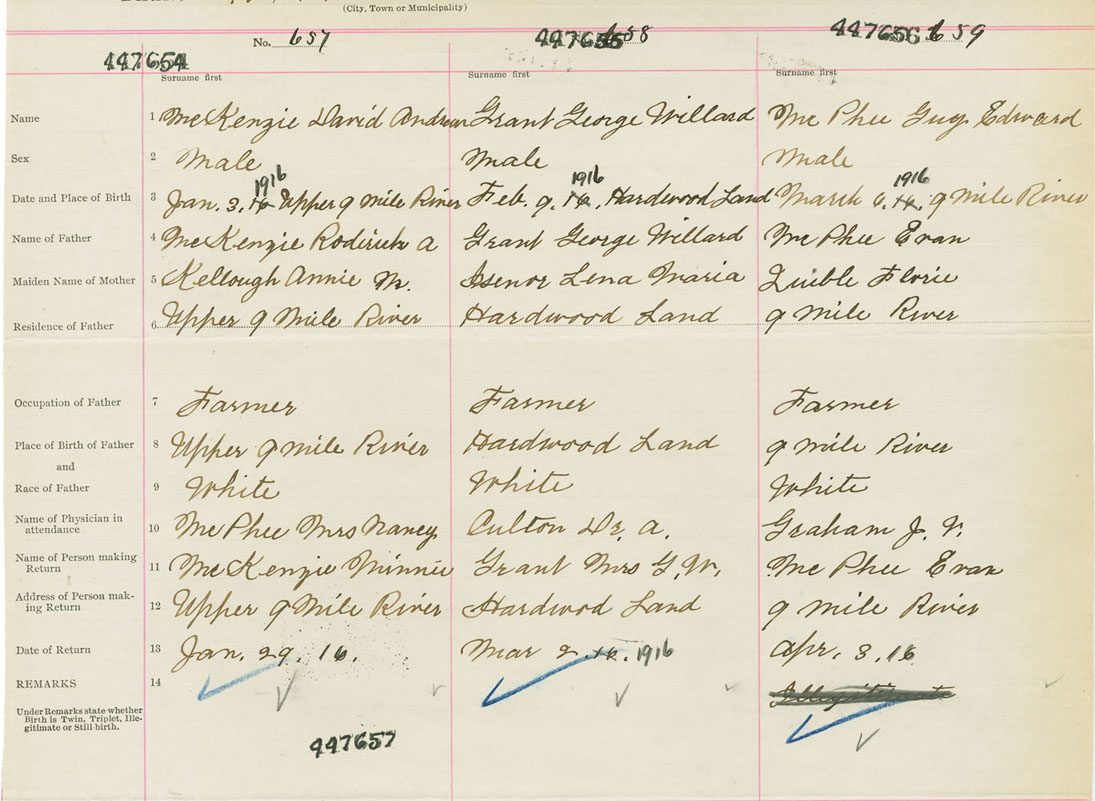 (City, Town or Municipality)
No. 657 658 659
447654 447655 447656
Surname first Surname first Surname first
Name 1 McKenzie David Andrew Grant George Willard McPhee Guy Edward
Sex 2 Male Male Male
1916 1916 1916
Date and Place of Birth 3 Jan. 3, 16 Upper 9 mile River Feb. 9, 16, Hardwood Land March 6, 16, 9 Mile River
Name of Father 4 McKenzie Roderick A Grant George Willard McPhee Evan
Maiden Name of Mother 5 Kellough Annie M. Isenor Lena Maria Florie
Residence of Father 6 Upper 9 Mile River Hardwood Land 9 Mile River
Occupation of Father 7 Farmer Farmer Farmer
Place of Birth of Father 8 Upper 9 mile River Hardwood Land 9 mile River
and
Race of Father 9 White White White
Name of Physician in
attendance 10 McPhee Mrs Nancy Culton Dr. A. Graham J. V.
Name of Person making
Return 11 McKenzie Minnie Grant Mrs G. W. McPhee Evan
Address of Person mak-
ing Return 12 Upper 9 Mile River Hardwod Land 9 mile River
Date of Return 13 Jan. 29. 16. Mar 2. 16. 1916 Apr. 3. 16
REMARKS 14 Illegitimate
Under Remarks state whether
Birth is Twin, Triplet, Ille-
gitimate or Still-birth.
447657